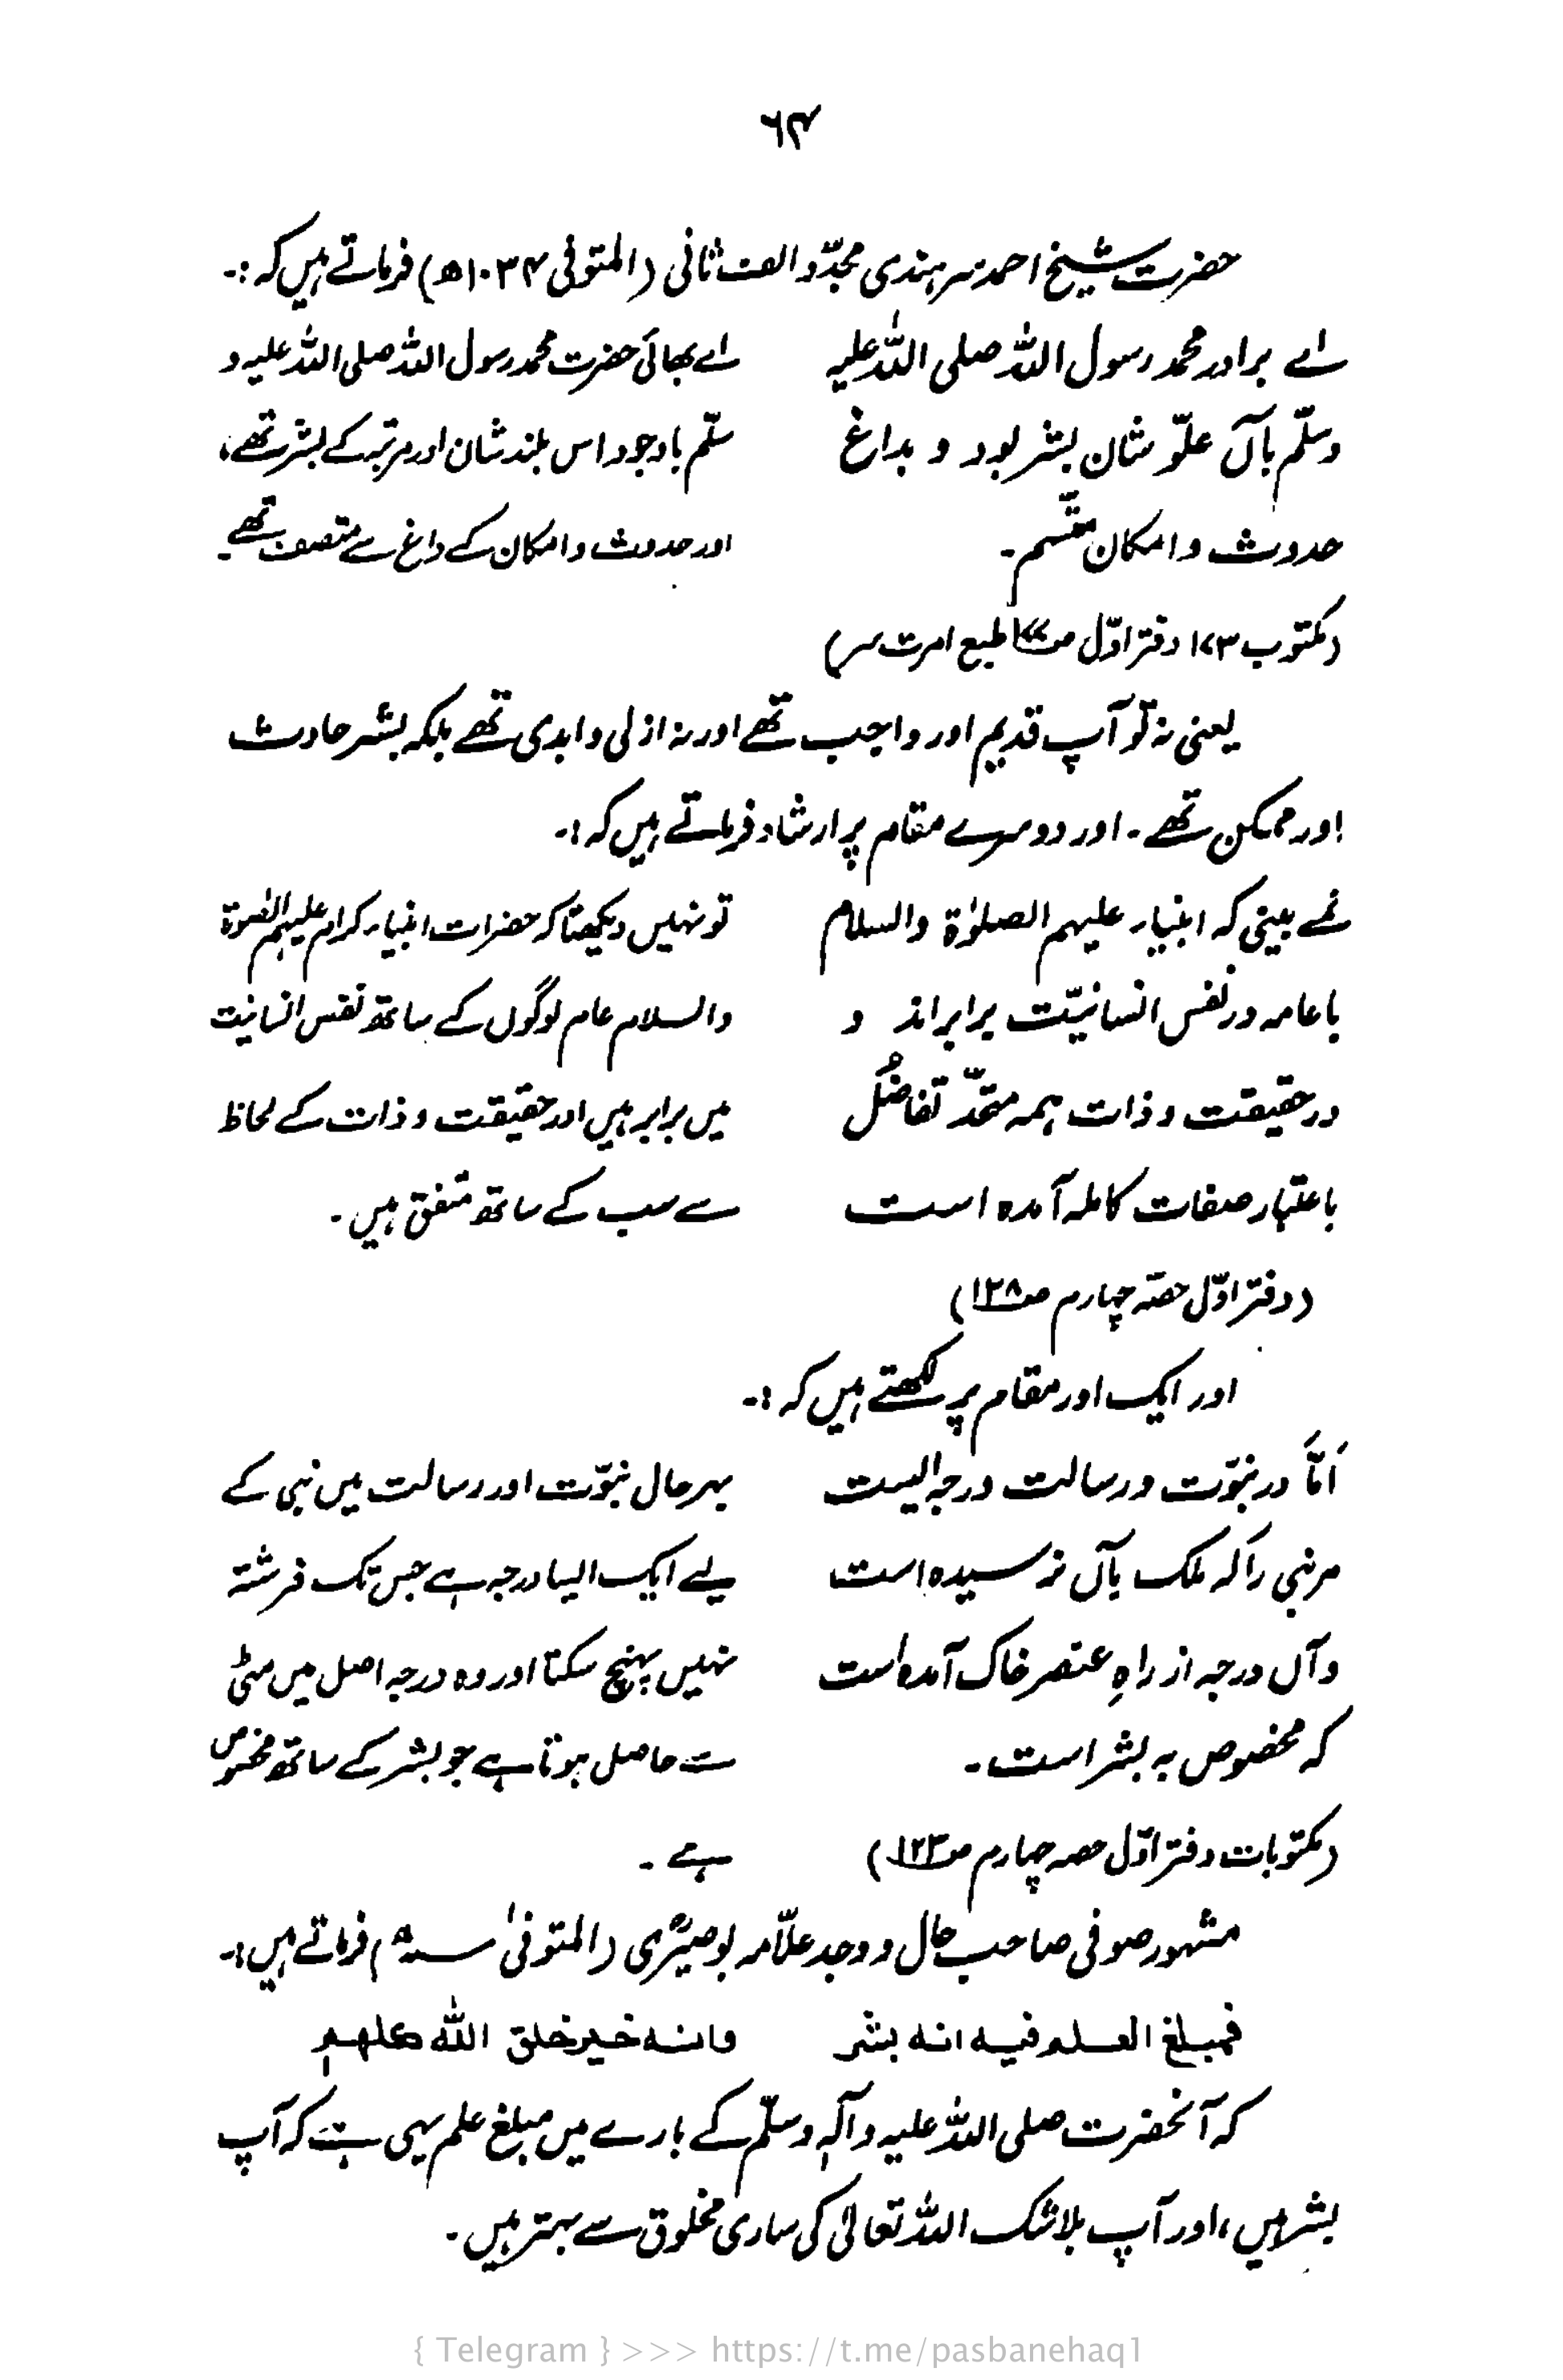 ٦٣
حضرت شیخ احمد سرہندی مجدّد الف ثانی (المتوفی ۱۰۳۴ھ) فرماتے ہیں کہ :۔
اے برادر محمد رسول اللہ صلی اللہ علیہ
وسلّم بآں علوّ شان بشر بود و بداغ
حدوث و امکان متّسم ۔
(مکتوب ۱۷۳ دفتر اوّل ص۱۷۷ طبع امرت سر)
اے بھائی حضرت محمد رسول اللہ صلی اللہ علیہ و
سلّم باوجود اس بلند شان اور مرتبہ کے بشر تھے،
اور حدوث و امکان کے داغ سے متصف تھے۔
یعنی نہ تو آپ قدیم اور واجب تھے اور نہ ازلی و ابدی تھے بلکہ بشر حادث
اور ممکن تھے ۔ اور دوسرے مقام پر ارشاد فرماتے ہیں کہ :۔
نمے بینی کہ انبیاء علیہم الصلوٰۃ والسلام
باعامہ در نفس انسانیّت برابر اند و
در حقیقت و ذات ہمہ متحدّ تفاضُل
باعتبار صفات کاملہ آمدہ است
(دفتر اوّل حصّہ چہارم ص۱۲۸)
تو نہیں دیکھتا کہ حضرات انبیاء کرام علیہم الصلوۃ
والسلام عام لوگوں کے ساتھ نفس انسانیت
میں برابر ہیں اور حقیقت و ذات کے لحاظ
سے سب کے ساتھ متفق ہیں ۔
اور ایک اور مقام پر لکھتے ہیں کہ :۔
اَمَّا در نبوّت و رسالت درجہ ایست
مر نبی را کہ ملک بآں نرسیدہ است
و آں درجہ از راہِ عنصر خاک آمدہ است
کہ مخصوص بہ بشر است ۔
(مکتوبات دفتر اوّل حصہ چہارم ص۱۲۳)
بہر حال نبوّت اور رسالت میں نبی کے
لیے ایک ایسا درجہ ہے جس تک فرشتہ
نہیں پہنچ سکتا اور وہ درجہ اصل میں مٹی
سے حاصل ہوتا ہے جو بشر کے ساتھ مخصوص
ہے ۔
مشہور صوفی صاحب حال و وجد علّامہ بوصیریؒ (المتوفیٰ فرماتے ہیں :۔
فمبلغ العلم فیه انه بشر وانه خیر خلق الله کلهم
کہ آنحضرت صلی اللہ علیہ وآلہٖ وسلّم کے بارے میں مبلغ علم یہی ہے کہ آپ
بشر ہیں، اور آپ بلاشک اللہ تعالیٰ کی ساری مخلوق سے بہتر ہیں ۔
{ Telegram } >>> https://t.me/pasbanehaq1